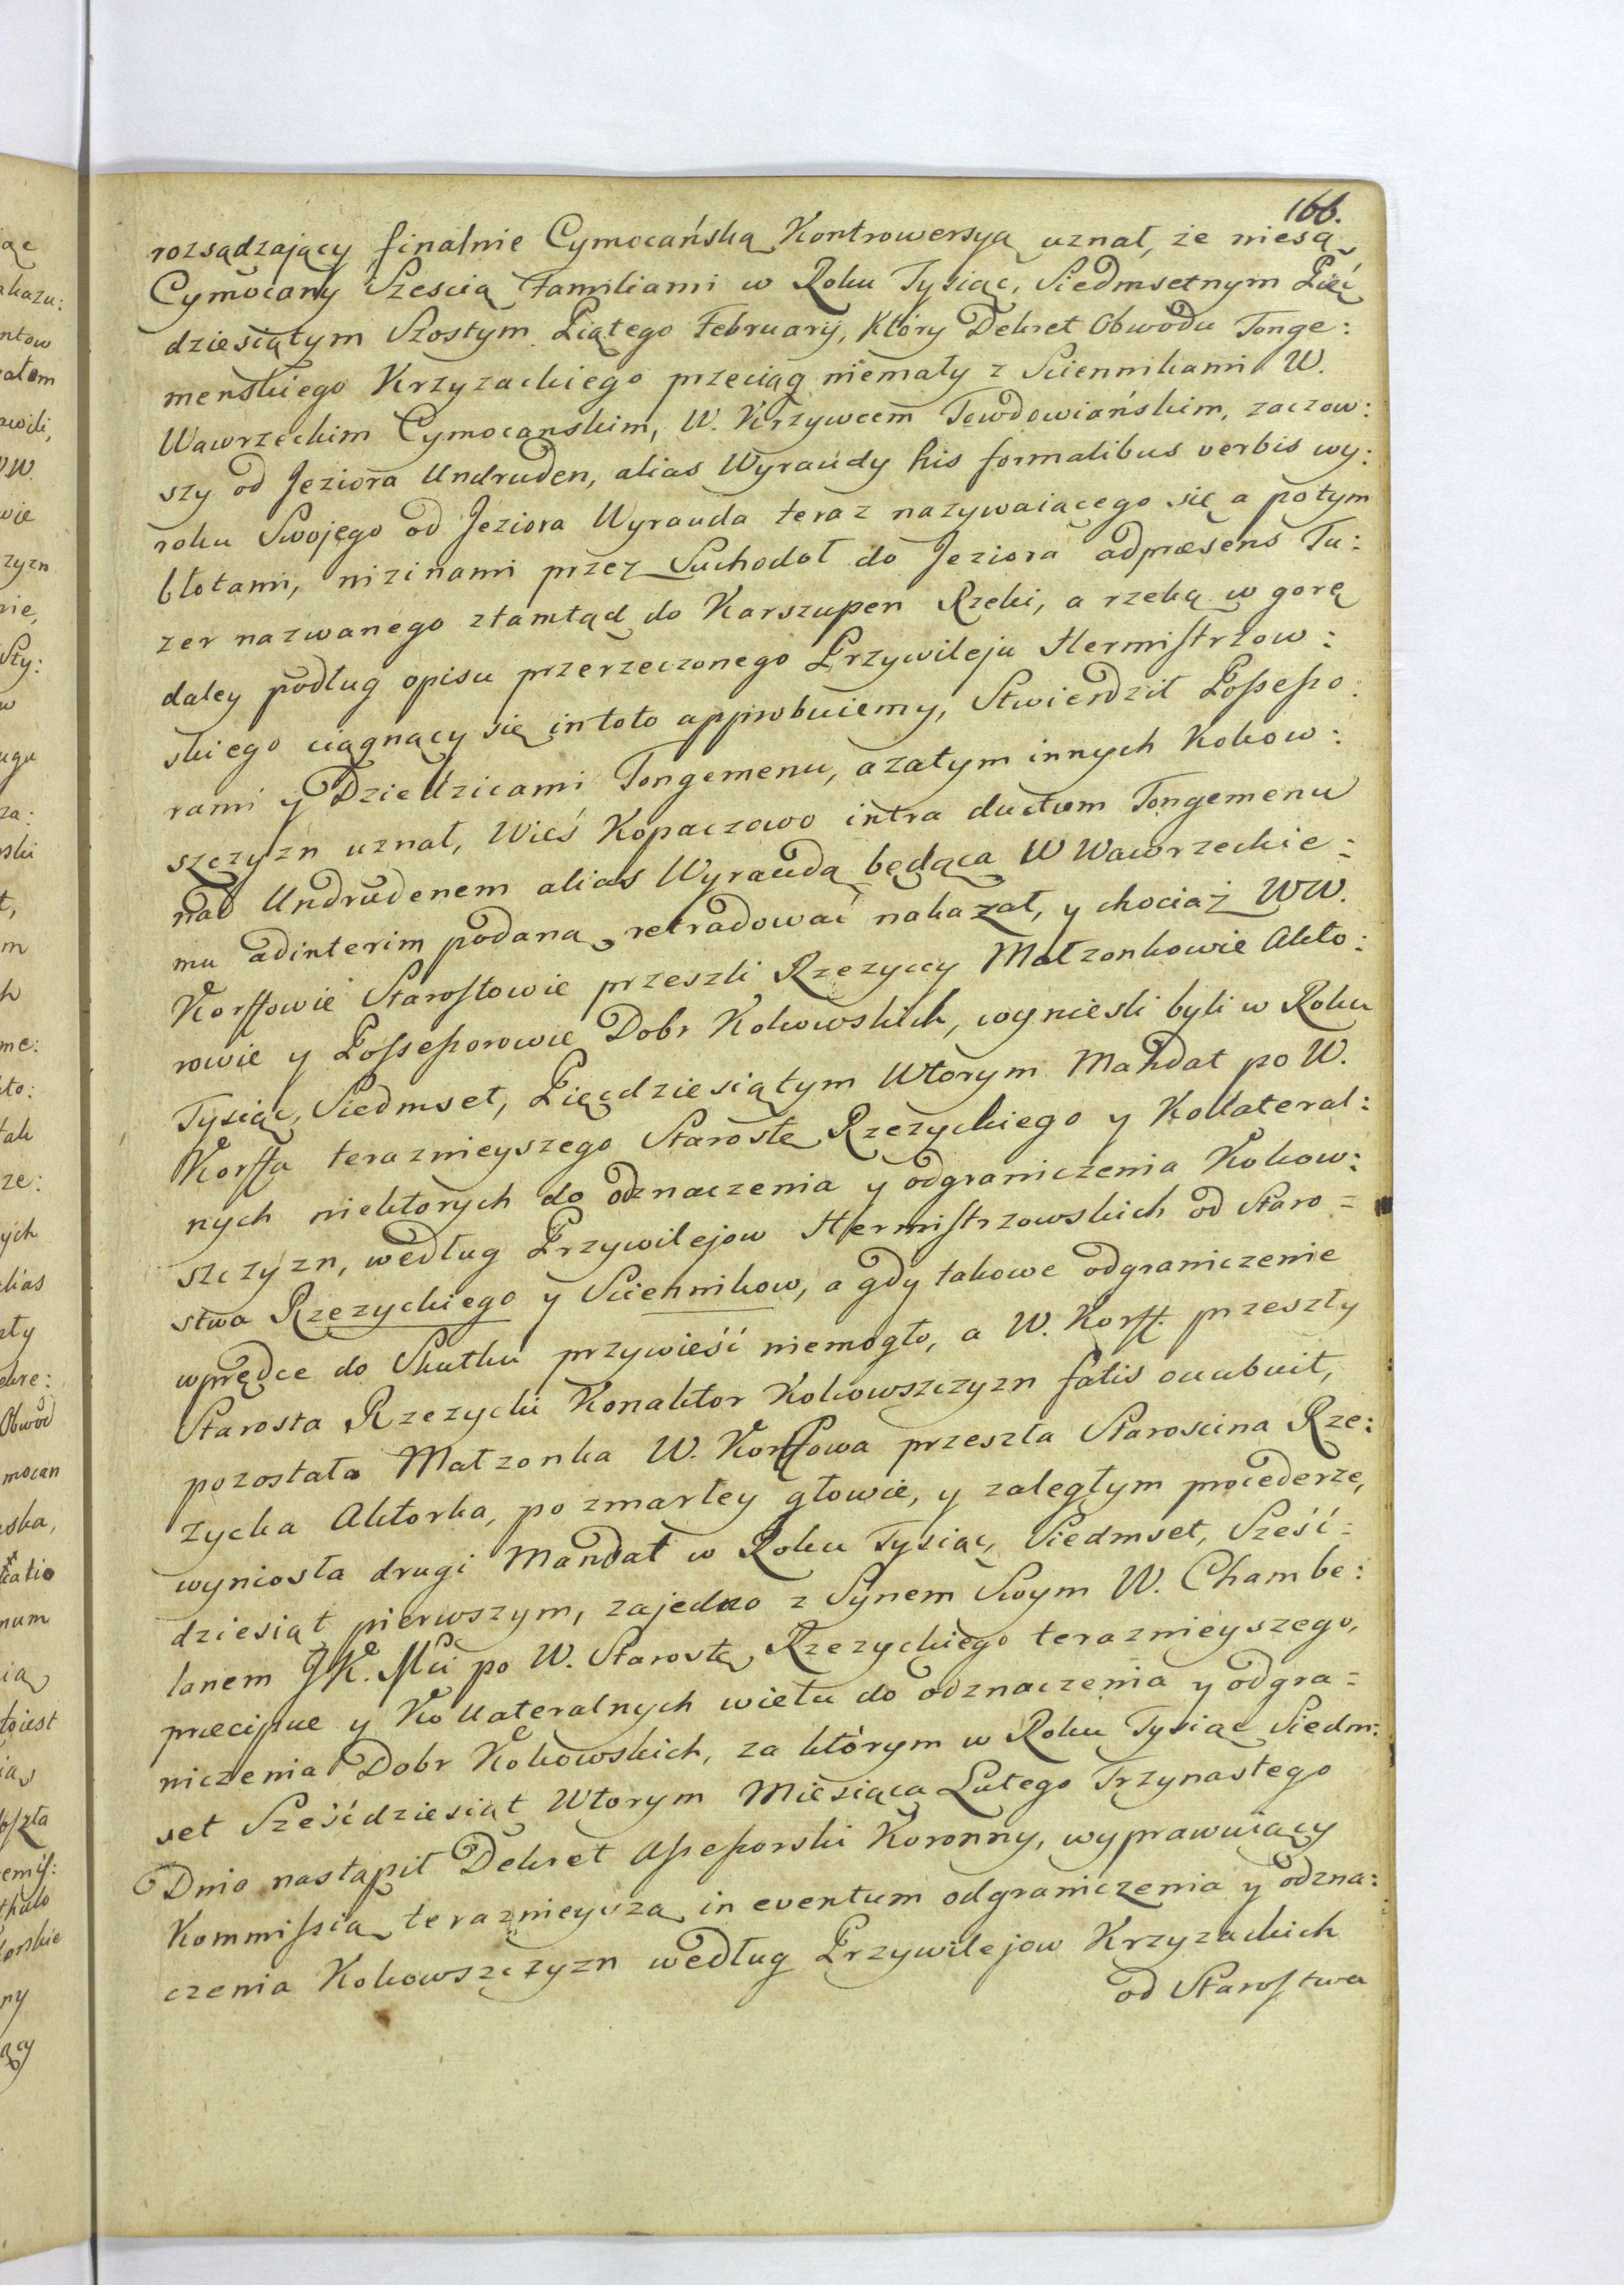 166.
rozsądzający finalnie Cymocańską Kontrowersyą uznał, że niesą
Cymocany Szescią Familiami w Roku Tysiąc, Siedmsetnym Pięć
dziesiątym Szostym Piątego February, Który Dekret Obwodu Tonge:
menskiego Krzyzackiego przeciąg niemały z Sciennikami W.
Wawrzeckim Cymocanskim, W. Krzywcem Tewdowiańskim, zaczow:
szy od Jeziora Undruden, alias Wyraudy his formalibus verbis wy:
roku Swojego od Jeziora Wyrauda teraz nazywaiącego się a potym
błotami, nizinami przez Suchodoł do Jeziora adpræsens Tu:
zer nazwanego ztamtąd do Karszupen Rzeki, a rzeką w gorę
daley podług opisu przerzeczonego Przywileju Hermistrzow:
skiego ciągnący się in toto approbuiemy, Stwierdził Possesso:
rami y Dziedzicami Tongemenu, azatym innych Kokow:
szczyzn uznał, Wieś Kopaczowo intra ductum Tongemenu
nad Undrudenem alias Wyraudą będąca W Wawrzeckie:
mu adinterim podaną retradować nakazał, y chociaż WW.
Korffowie Starostowie przeszli Rzezyccy Małzonkowie Akto:
rowie y Possessorowie Dobr Kokowskich, wyniesli byli w Roku
Tysiąc, Siedmset, Pięćdziesiątym Wtorym Mandat po W.
Korffa teraznieyszego Starostę Rzezyckiego y Kollateral:
nych niektorych do odznaczenia y odgraniczenia Kokow:
szczyzn, według Przywilejow Hermistrzowskich od Staro=
stwa Rzezyckiego y Sciennikow, a gdy takowe odgraniczenie
wprędce do Skutku przywieść niemogło, a W. Korff przeszły
Starosta Rzezycki Konaktor Kokowszczyzn fatis ocubuit,
pozostała Małzonka W. Korffowa przeszła Staroscina Rze:
zycka Aktorka, po zmarłey głowie, y zaległym procederze,
wyniosła drugi Mandat w Roku Tysiąc, Siedmset, Sześć=
dziesiąt pierwszym, zajedno z Synem Swym W. Chambe:
lanem JK. Mci po W. Starostę Rzezyckiego teraznieyszego,
præcipue y Kollateralnych wielu do odznaczenia y odgra=
niczenia Dobr Kokowskich, za którym w Roku Tysiąc Siedm:
set Sześćdziesiąt Wtorym Miesiąca Lutego Trzynastego
Dnia nastąpił Dekret Assessorski Koronny, wyprawuiący
Kommissią teraznieyszą in eventum odgraniczenia y odzna:
czenia Kokowszczyzn według Przywilejow Krzyzackich
od Starostwa